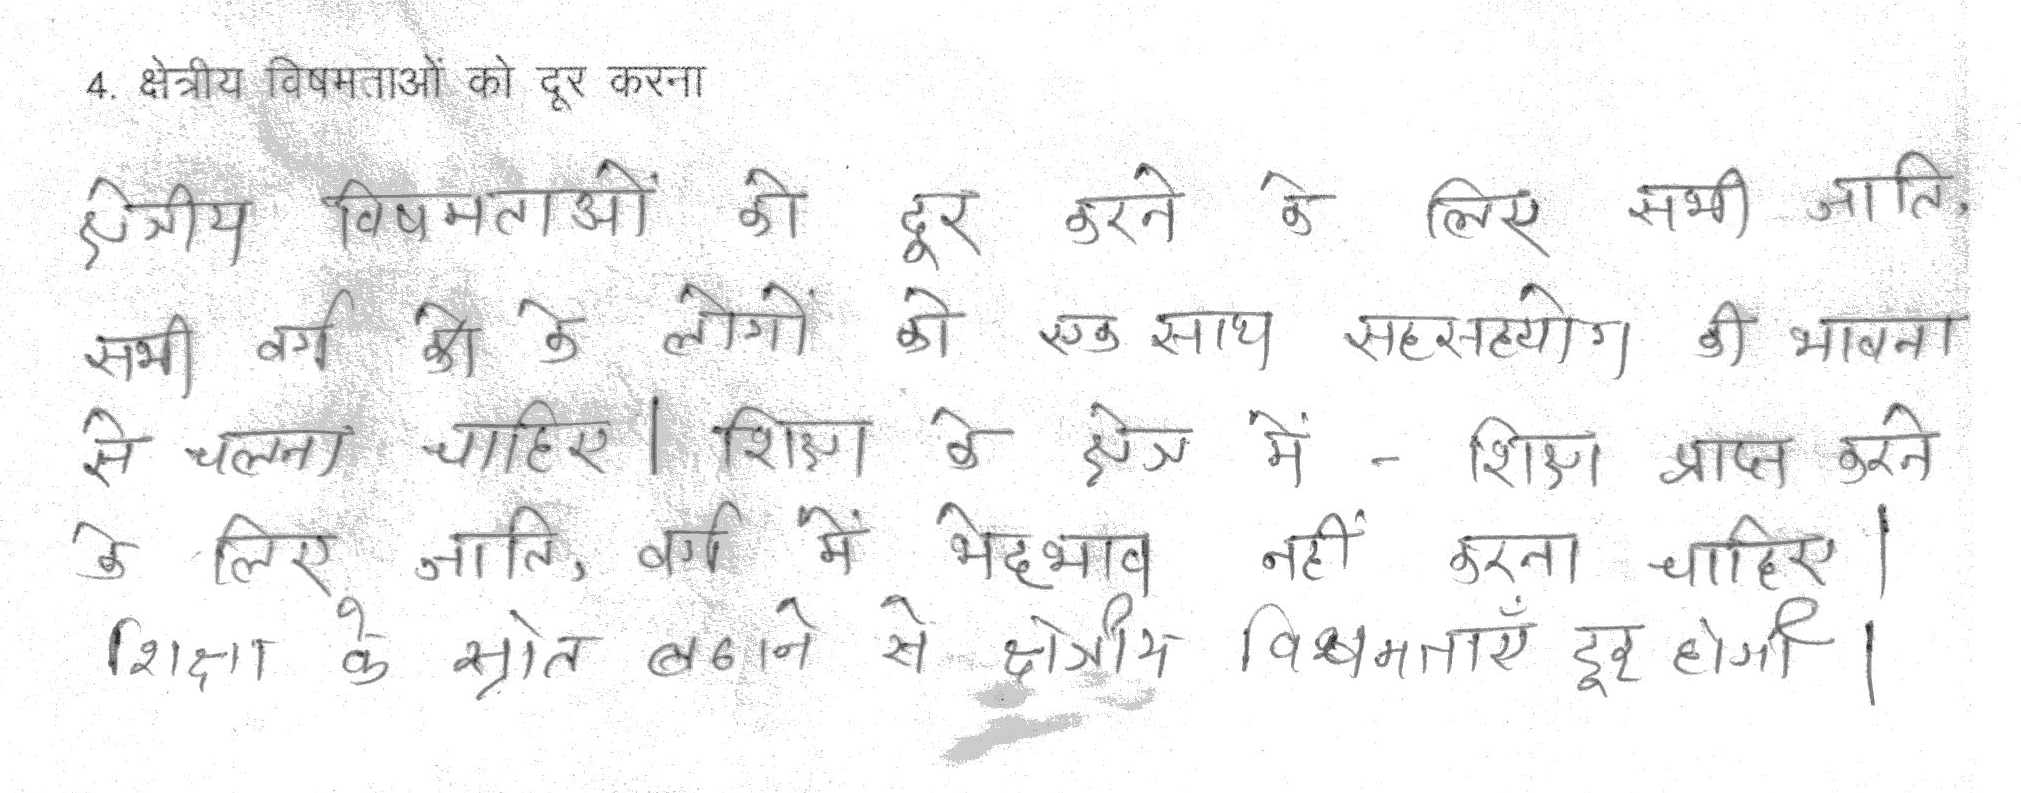 4. क्षेत्रीय विषमताओं को दूर करना
क्षेत्रीय विषमताओं को दूर करने के लिए सभी जाति,
सभी वर्ग को के लोगों को एक साथ सहसहयोग की भावना
से चलना चाहिए । शिक्षा के क्षेत्र में - शिक्षा प्राप्त करने
के लिए जाति, वर्ग में भेदभाव नहीं करना चाहिए ।
शिक्षा के स्रोत बढाने से क्षेत्रीय विषमताएँ दूर होगी ।